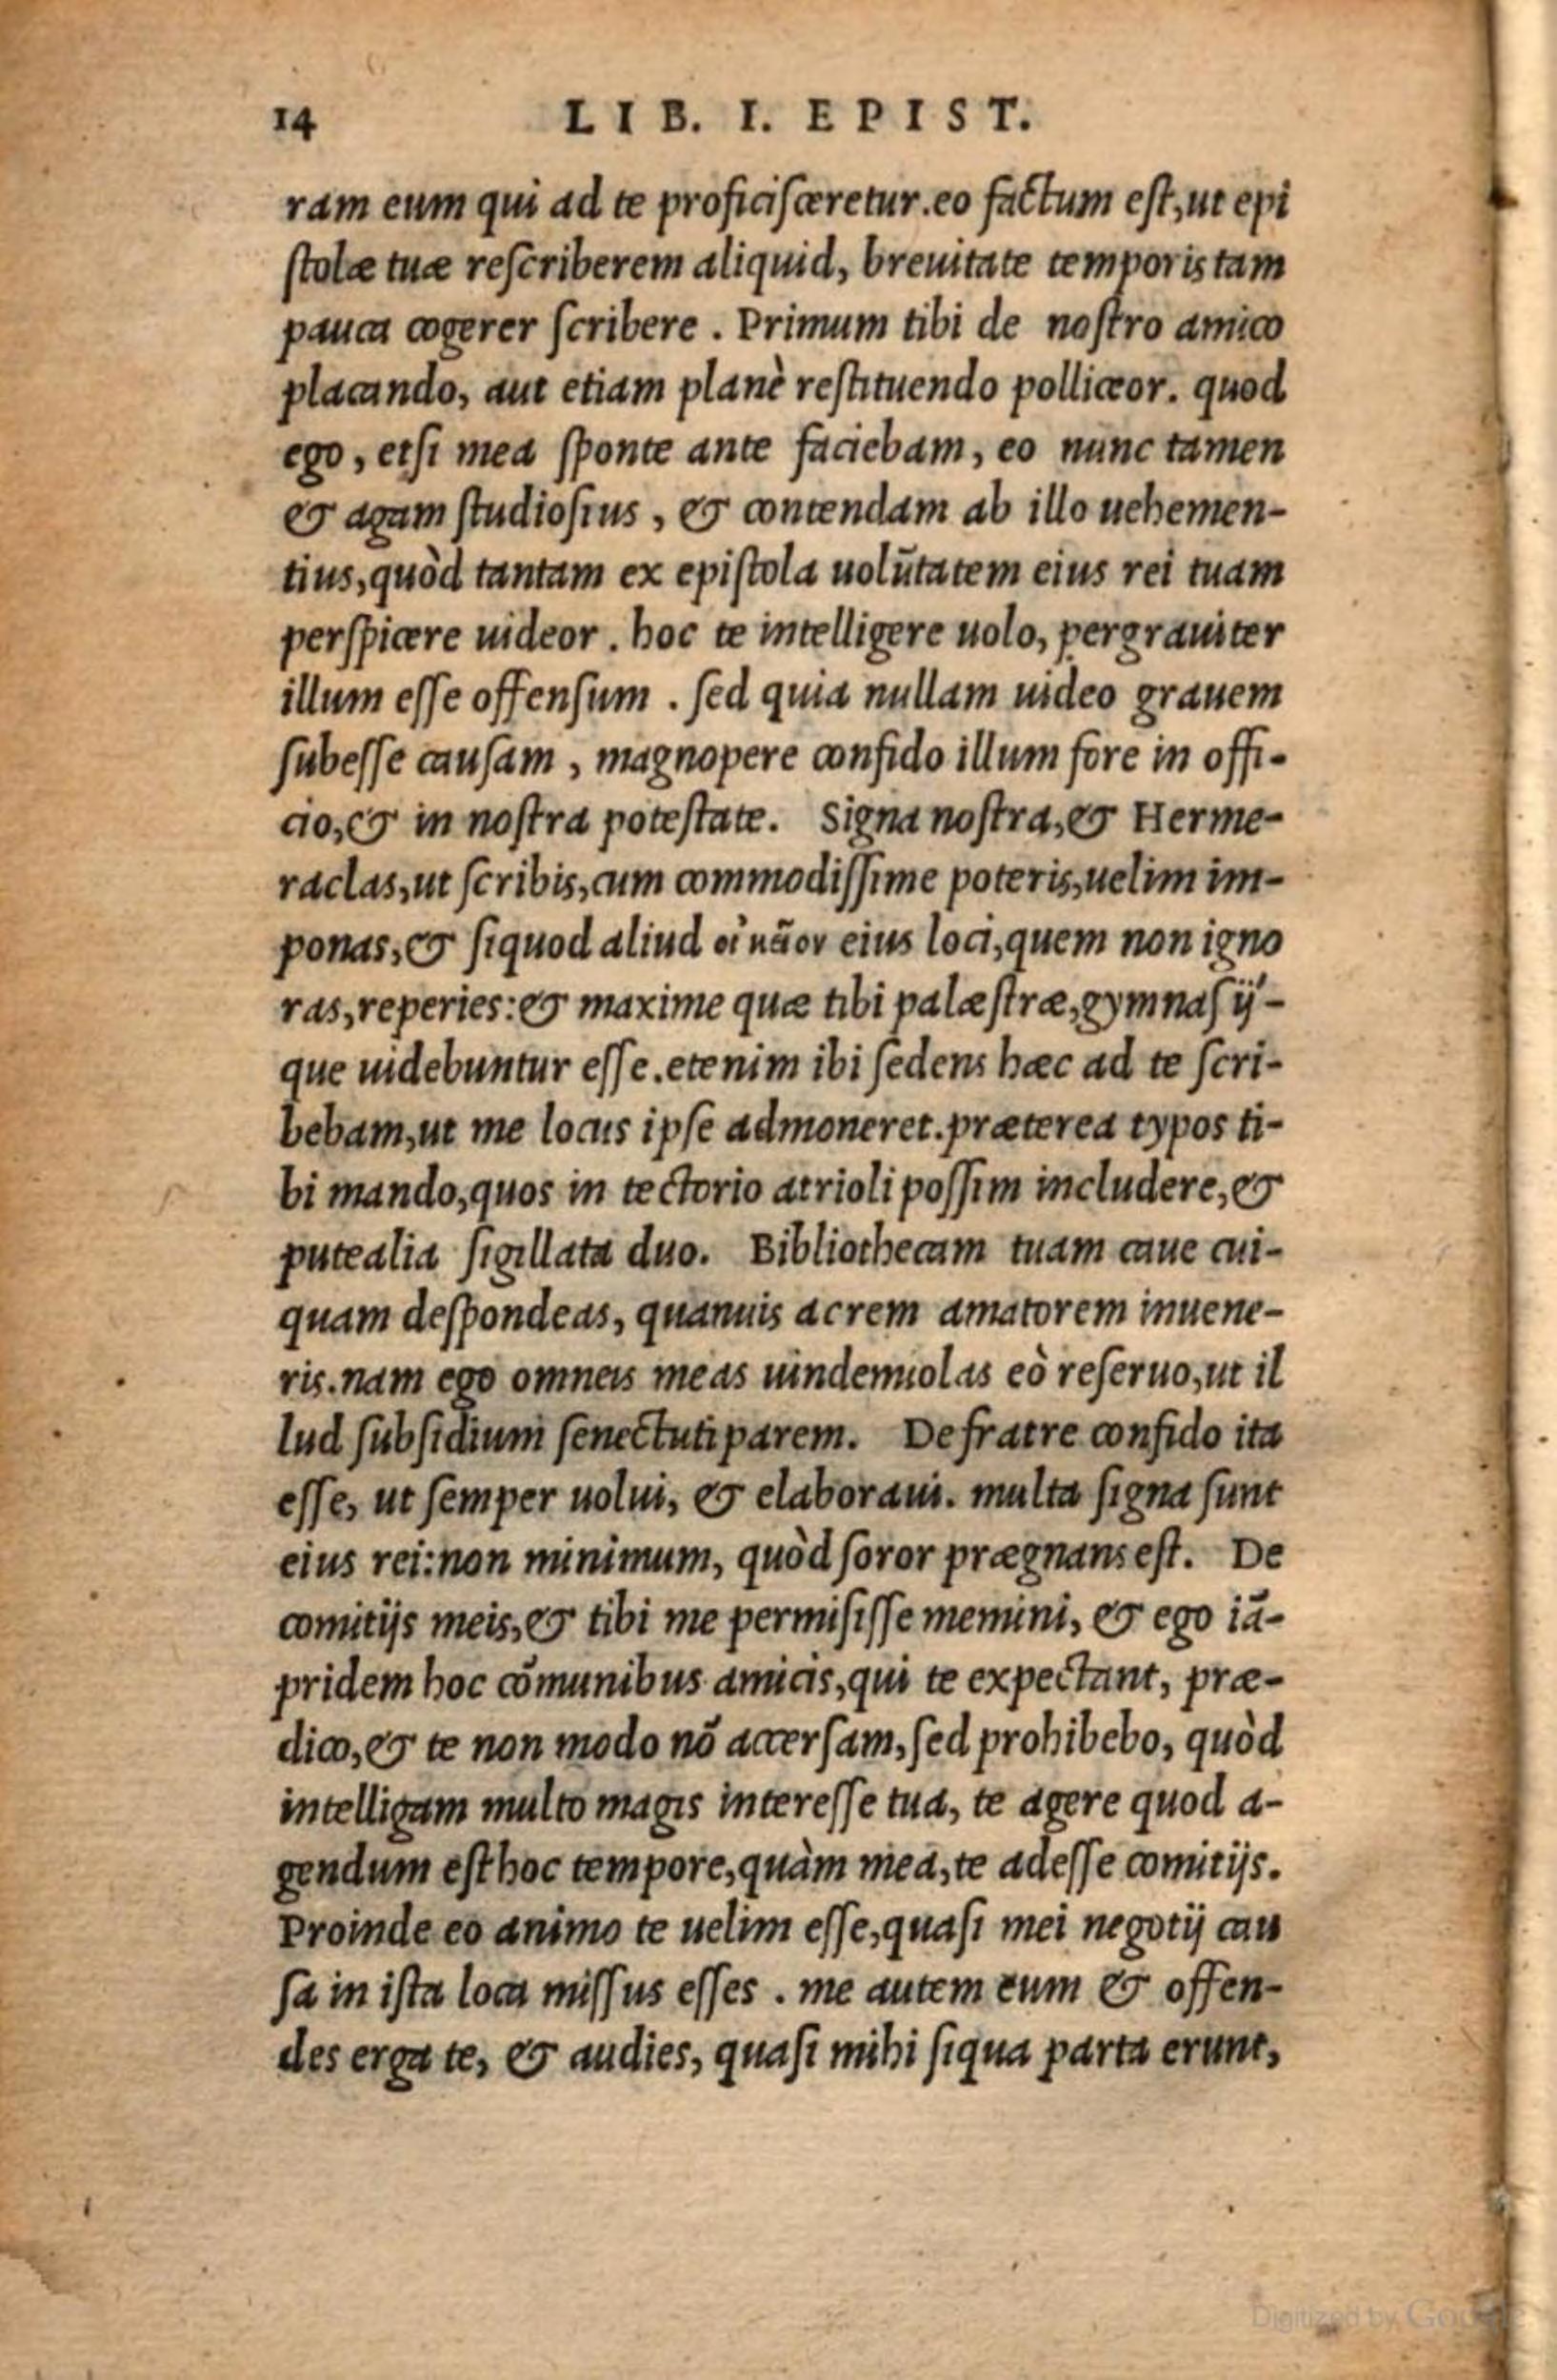 14 LIB. I. EPIST.
ram eum qui ad te proficisceretur.eo factum est,ut epi
stolæ tuæ rescriberem aliquid, breuitate temporis tam
pauca cogerer scribere . Primum tibi de nostro amico
placando, aut etiam planè restituendo polliceor. quod
ego, etsi mea sponte ante faciebam, eo nunc tamen
& agam studiosius, & contendam ab illo uehemen-
tius,quòd tantam ex epistola uolũtatem eius rei tuam
perspicere uideor . hoc te intelligere uolo, pergrauiter
illum esse offensum . sed quia nullam uideo grauem
subesse causam, magnopere confido illum fore in offi-
cio,& in nostra potestate. Signa nostra,& Herme-
raclas,ut scribis,cum commodissime poteris,uelim im-
ponas,& siquod aliud οἰκεῖον eius loci,quem non igno
ras,reperies:& maxime quæ tibi palæstræ,gymnasij-
que uidebuntur esse.etenim ibi sedens hæc ad te scri-
bebam,ut me locus ipse admoneret.præterea typos ti-
bi mando,quos in tectorio atrioli possim includere,&
putealia sigillata duo. Bibliothecam tuam caue cui-
quam despondeas, quanuis acrem amatorem inuene-
ris.nam ego omneis meas uindemiolas eò reseruo,ut il
lud subsidium senectuti parem. De fratre confido ita
esse, ut semper uolui, & elaboraui. multa signa sunt
eius rei:non minimum, quòd soror prægnans est. De
comitijs meis,& tibi me permisisse memini, & ego iã-
pridem hoc cõmunibus amicis,qui te expectant, præ-
dico,& te non modo nõ accersam,sed prohibebo, quòd
intelligam multo magis interesse tua, te agere quod a-
gendum est hoc tempore,quàm mea,te adesse comitijs.
Proinde eo animo te uelim esse,quasi mei negotij cau
sa in ista loca missus esses . me autem eum & offen-
des erga te, & audies, quasi mihi siqua parta erunt,
Digitized by Google